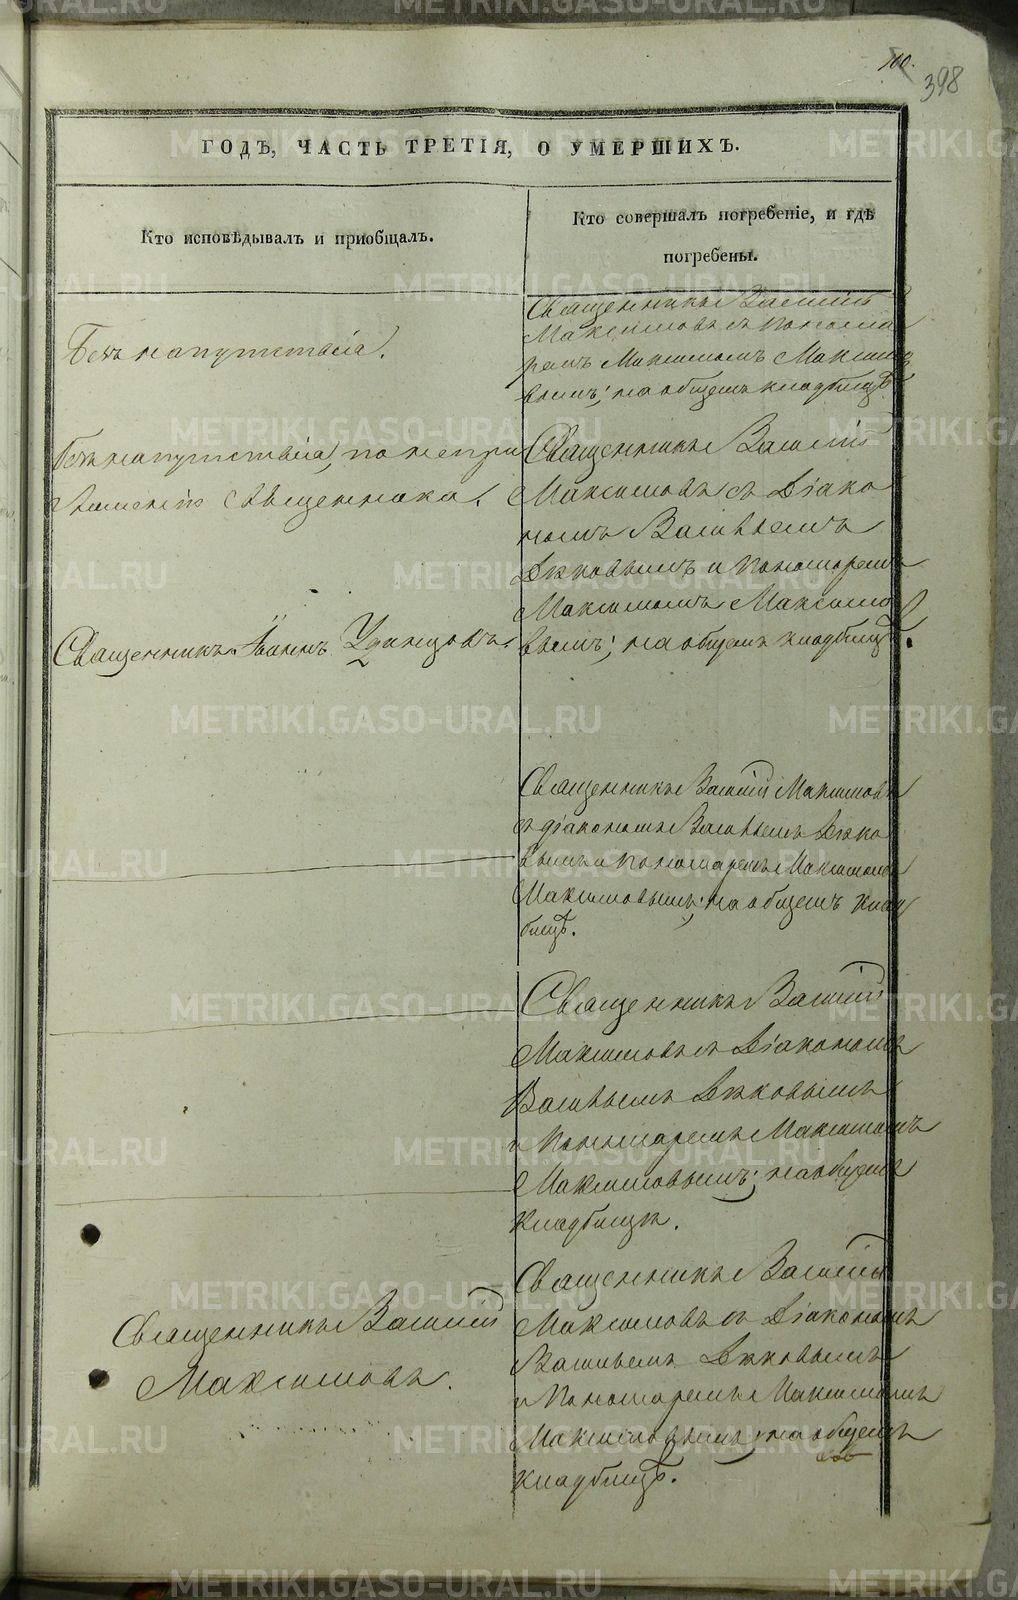 100.
398
ГОДЪ, ЧАСТЬ ТРЕТІЯ, О УМЕРШИХЪ.
Кто исповѣдывалъ и приобщалъ.
Кто совершалъ погребеніе, и гдѣ
погребены.
Безъ напутствія.
Священникъ Василій
Максимовъ съ Понома
ремъ Максимомъ Максимо
вымъ; на общемъ кладбищѣ.
Безъ напутствія, по непри
глашенію Священника.
Священникъ Василій
Максимовъ съ Діако
номъ Васильемъ
и Пономаремъ
Максимомъ Максимо
вымъ; на общемъ кладбищѣ.
Священникъ Іоаннъ Удинцовъ.
Священникъ Василій Максимовъ
съ діакономъ Васильемъ
и Пономаремъ Максимомъ
Максимовымъ; на общемъ клад
бищѣ.
Священникъ Василій
Максимовъ съ Діакономъ
Васильемъ
и Пономаремъ Максимомъ
Максимовымъ; на общемъ
кладбищѣ.
Священникъ Василій
Максимовъ.
Священникъ Василій
Максимовъ съ Діакономъ
Васильемъ
и Пономаремъ Максимомъ
Максимовымъ; на общемъ
кладбищѣ.
METRIKI.GASO-URAL.RU